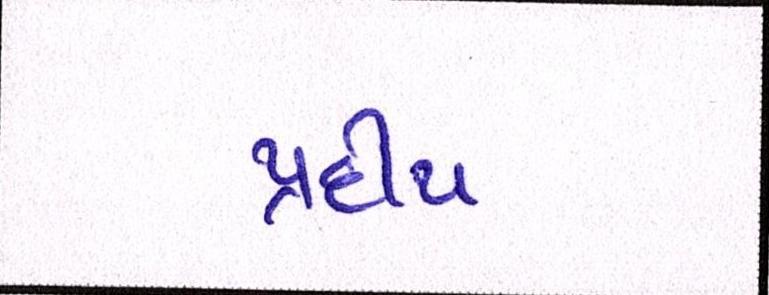 પ્રદીપ